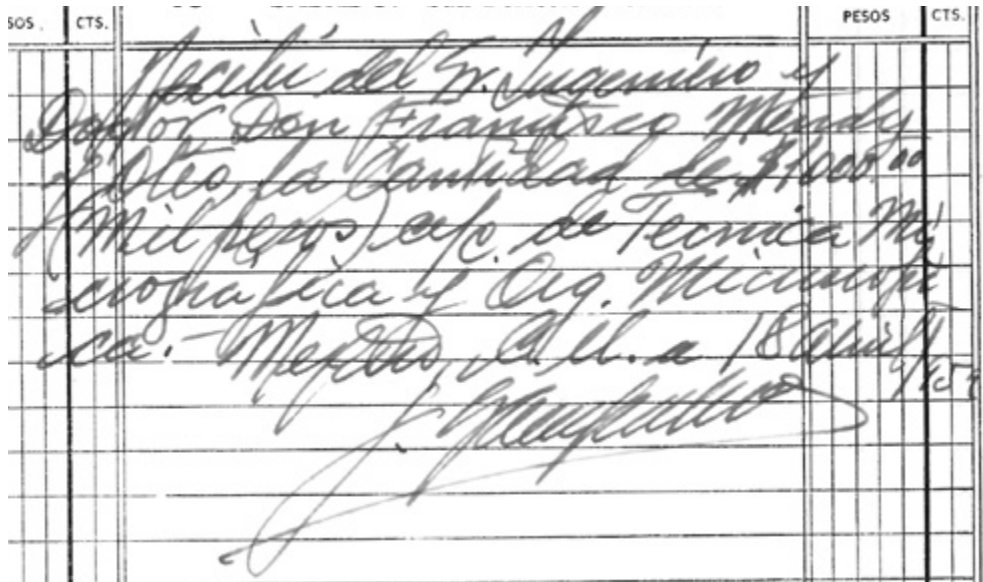 PESOS CTS. PESOS CTS.
Recibí del Sr. Ingeniero y
Doctor Don Francisco Mendy
Oteo la Cantidad de $1000.00
(Mil pesos) a/c. de Técnica Mi
crografica y Org. Microscópi
ca.- México, a 18 Abril
J.